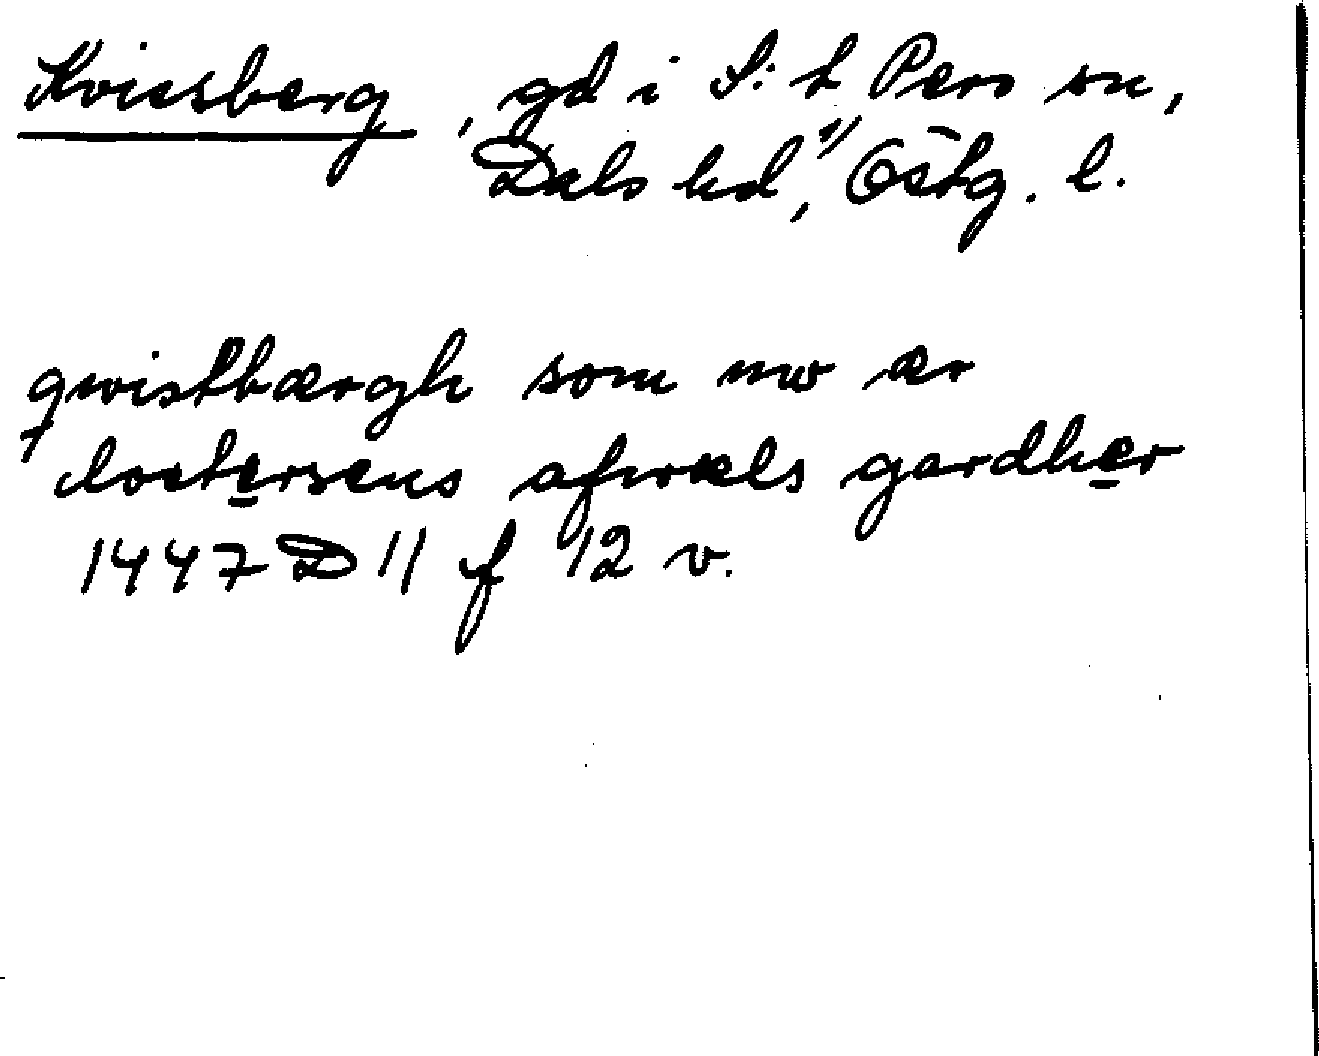 Kvissberg, gd i S:t Pers sn,
Dals hd,¹⁾ Östg. l.
qwistbærgh som nw ær
clostersens afwæls gardher
1447 D 11 f 12 v.